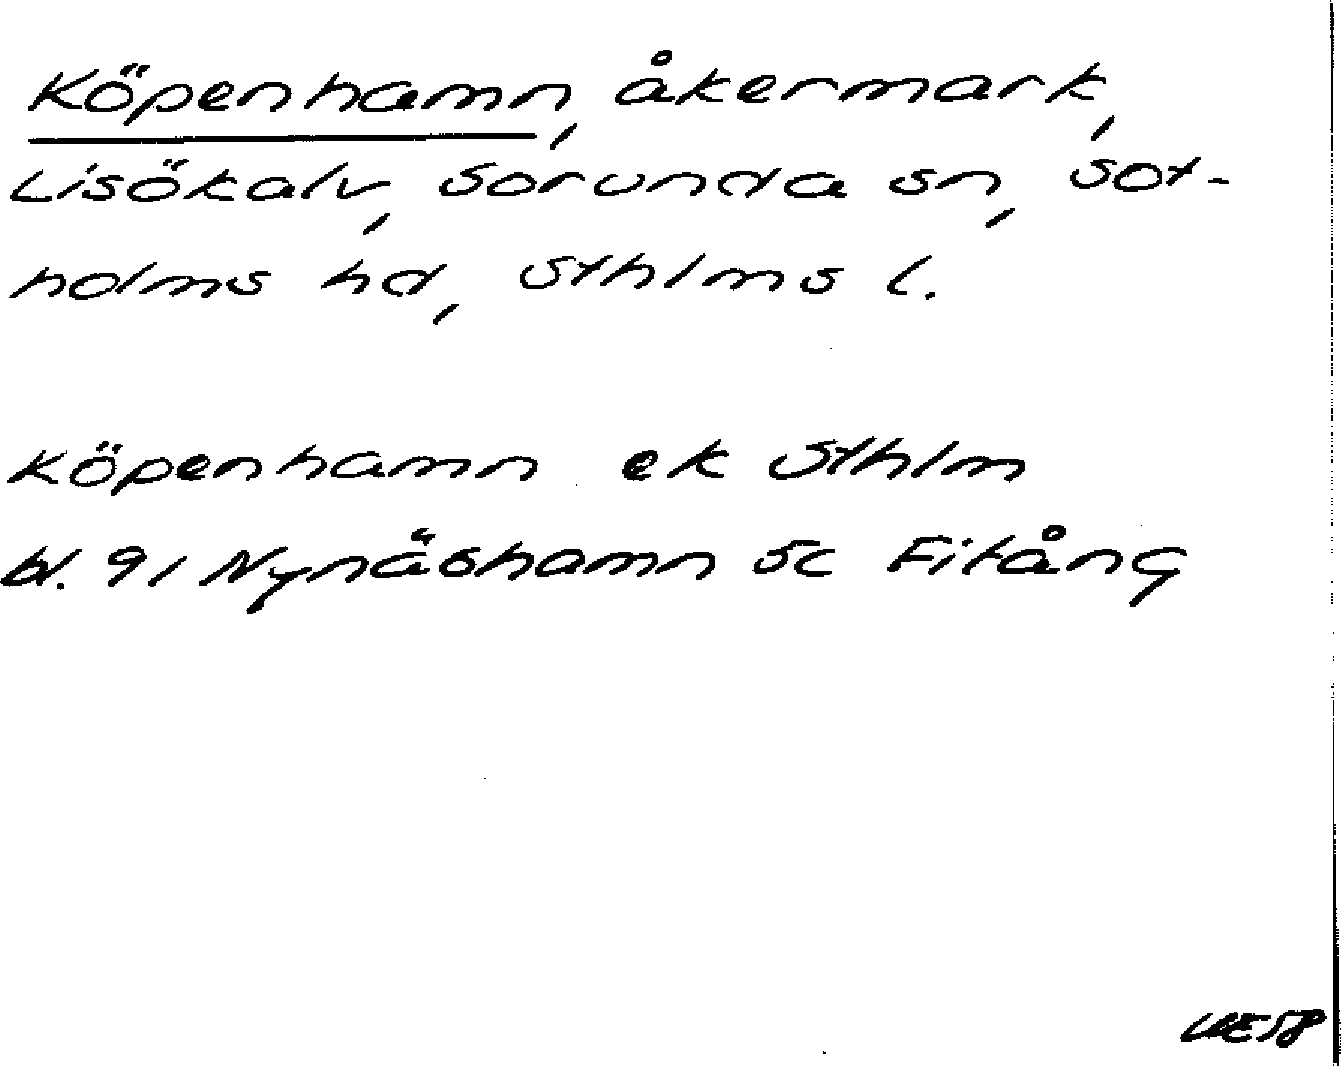 Köpenhamn, åkermark,
Lisökalv, Sorunda sn, Sot-
holms hd, Sthlms l.
Köpenhamn ek Sthlm
bl. 91 Nynäshamn 5c Fitång